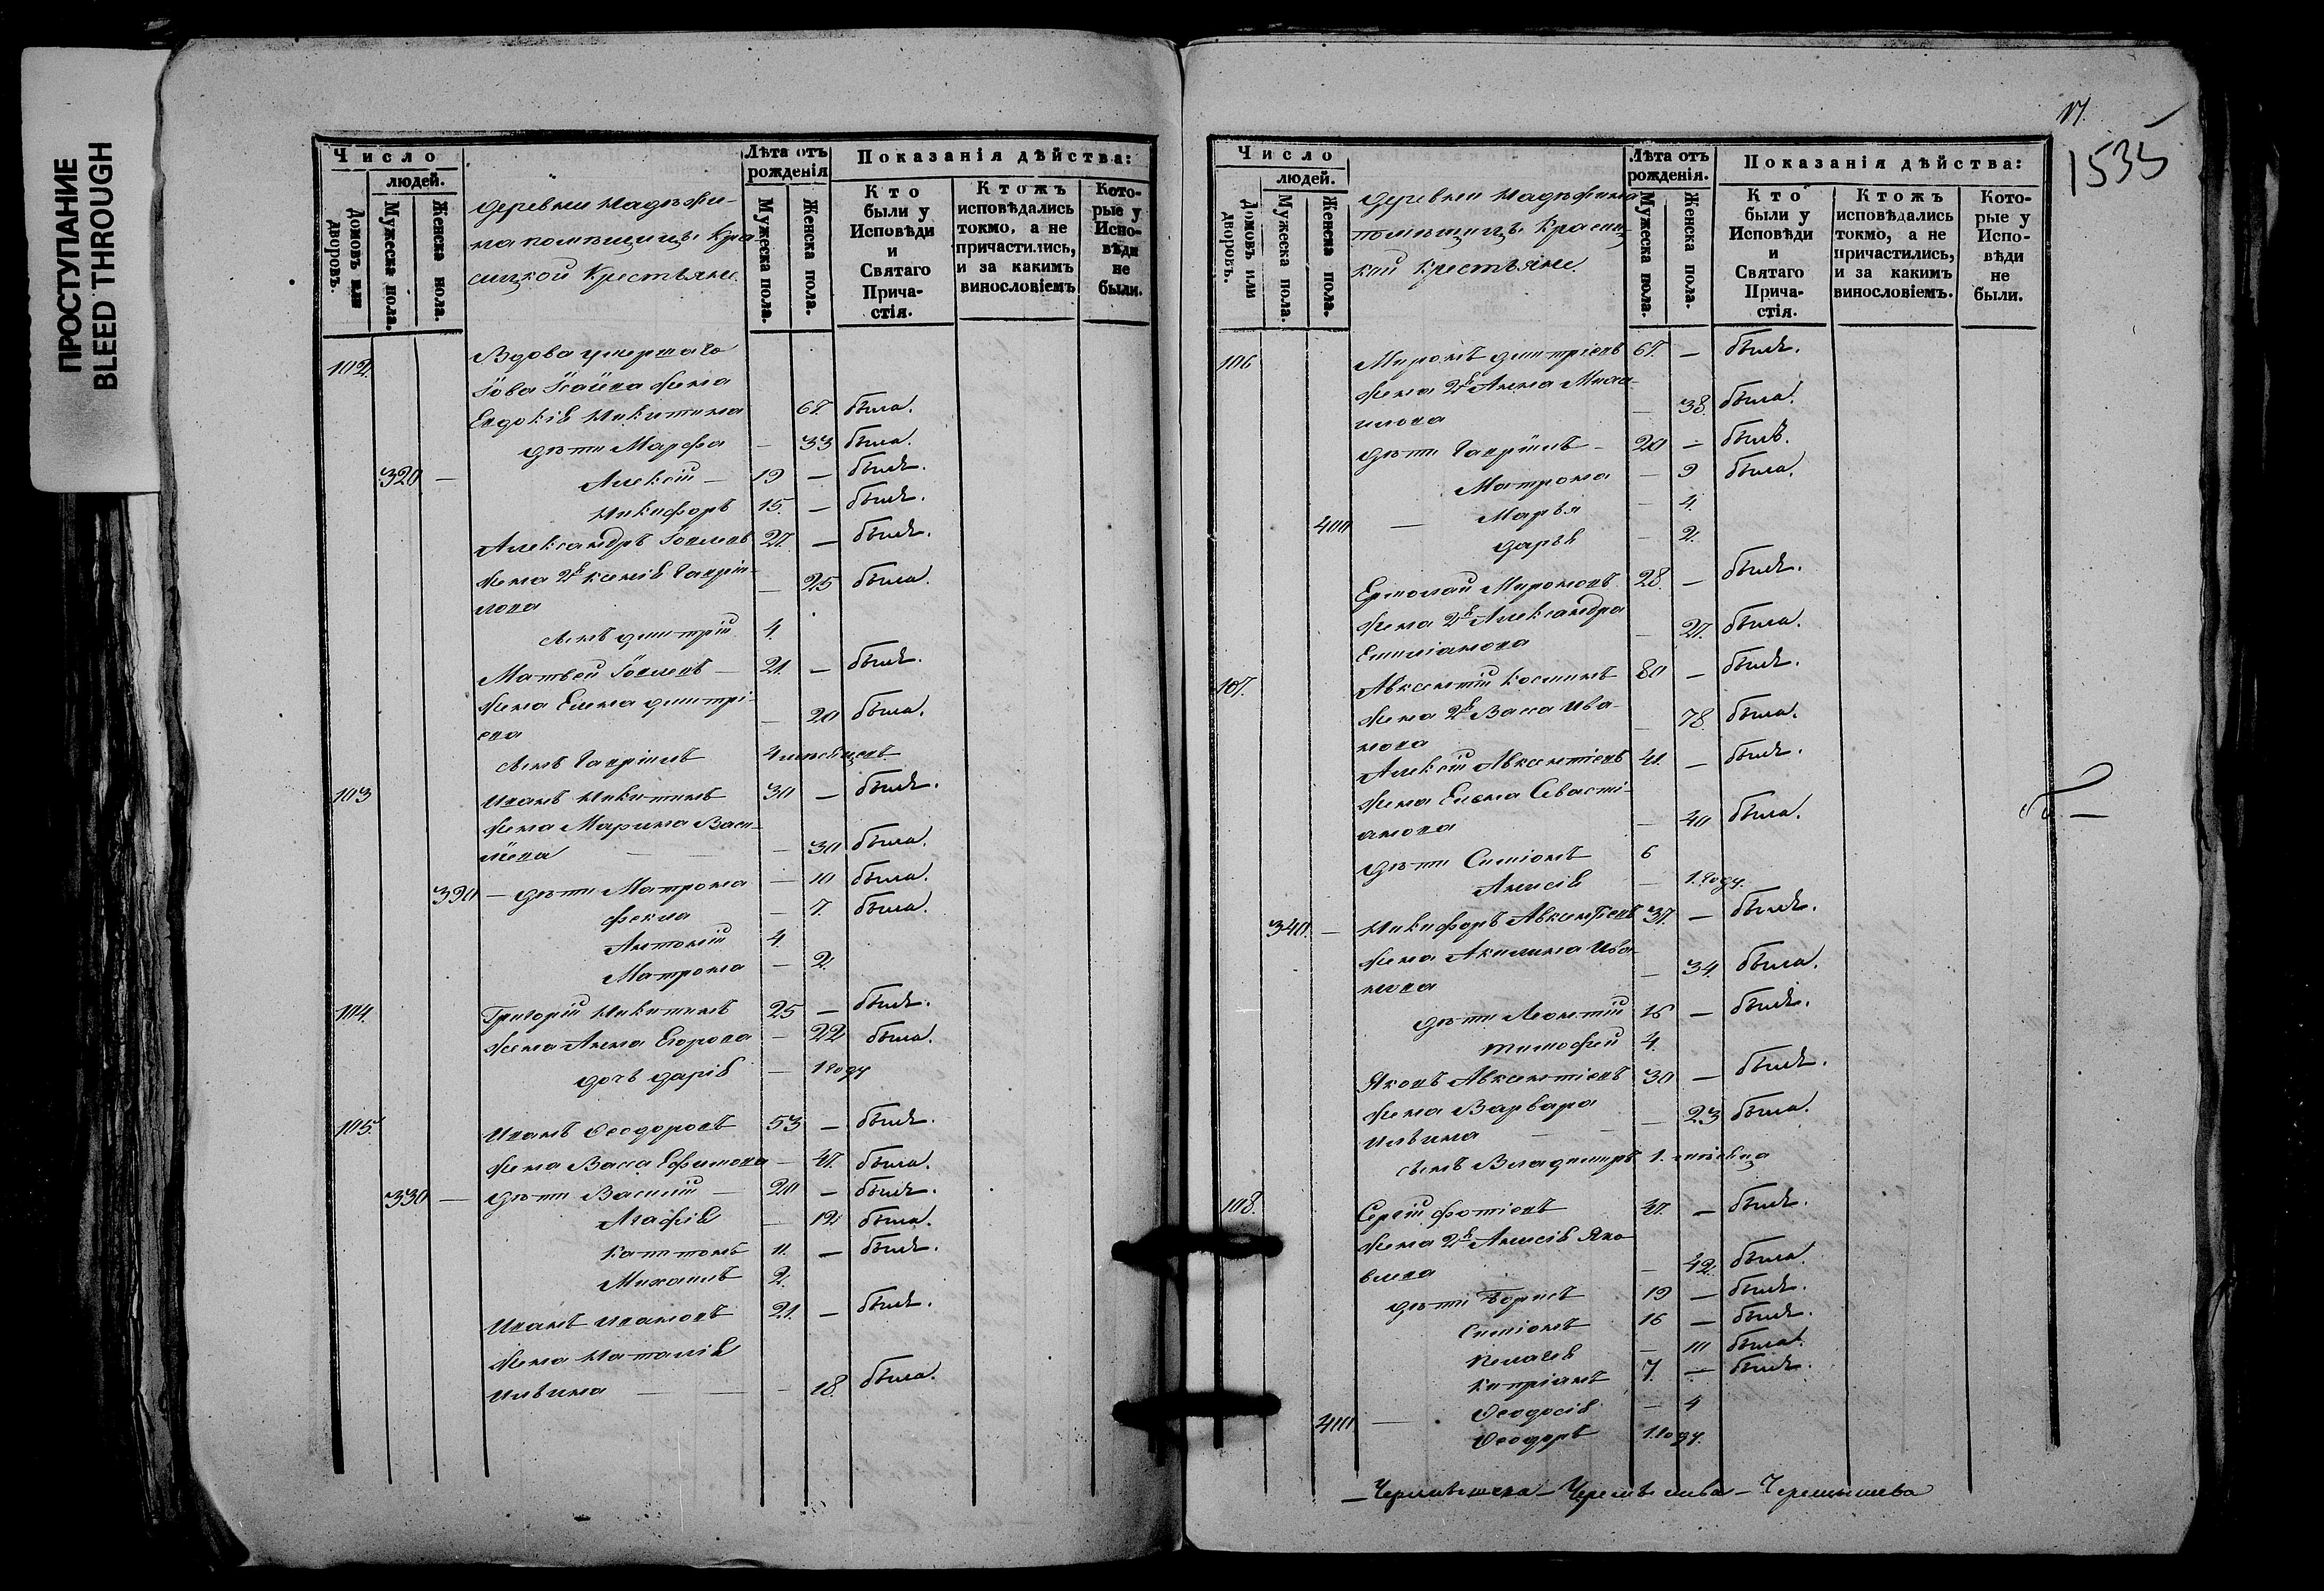 ПРОСТУПАНИЕ
BLEED THROUGH
Число
людей.
Домовъ или дворовъ.
Мужеска пола.
Женска пола.
деревни Надъжи-
на помѣщицы Кра
сицкой Крестьяне.
Лѣта отъ рожденія
Мужеска пола.
Женска пола.
Показанія дѣйства:
Кто были у Исповѣди и Святаго Прича-стія.
Ктожъ исповѣдались токмо, а не причастились, и за какимъ винословіемъ
Кото-рые у Испо-вѣди не были.
102. Вдова умершаго
Іова Исаіна жена
Евдокія Никитина 67. была.
дѣти Марфа – 33 была.
320 – Алексій – 19 – былъ.
Никифоръ 15. – былъ.
Александръ Іовлевъ 27. – былъ.
жена 2я Ксенія Гаврiи-
лова – 25 была.
сынъ Дмитрій 4.
Матвей Іовлевъ – 21. – былъ.
жена Елена Дмитрі-
ева – 20 была.
сынъ Гавріилъ 4 мѣсяцевъ
103 Иванъ Никитинъ 30 – былъ.
жена Марина Васи-
льева – 30 была.
390 – дѣти Матрона – 10 была.
Фекла – 7. была.
Антоній 4.
Матрона – 2.
104. Григорій Никитинъ 25 – былъ.
жена Анна Егорова – 22 была.
дочь Дарія – 1 году
105. Иванъ Ѳеодоровъ 53 – былъ.
жена Васса Ефимова – 47. была.
330 – дѣти Василій – 20 – былъ.
Агафія – 12 была.
Капитонъ 11. – былъ.
Михаилъ 2.
Иванъ Ивановъ 21. – былъ.
жена Наталія
Ильина – 18. была.
1535
Число
людей.
Домовъ или дворовъ.
Мужеска пола.
Женска пола.
деревни Надъжина
помѣщицы Красиц-
кой Крестьяне.
Лѣта отъ рожденія.
Мужеска пола.
Женска пола.
Показанія дѣйства:
Кто были у Исповѣди и Святаго Прича-стія.
Ктожъ исповѣдались токмо, а не причастились, и за какимъ винословіемъ.
Кото-рые у Испо-вѣди не были.
106 Миронъ Дмитріевъ 67. – былъ.
жена 2я Анна Миха-
илова – 38. была.
дѣти Гавріилъ – 20 – былъ.
Матрона – 9 была.
400 – Марья – 4.
Дарья – 2.
Ермолай Мироновъ 28. – былъ.
жена 2я Александра
Емиліанова – 27. была.
107. Авксентій Косминъ 80 – былъ.
жена 2я Васса Ива-
нова – 78. была.
Алексій Авксентіевъ 41. – былъ.
жена Елена Севасті-
анова – 40 была.
дѣти Симіонъ 6
Анисія – 1. году.
340. – Никифоръ Авксентіевъ 37. – былъ.
жена Акилина Ива-
нова – 34. была.
дѣти Леонтій 16 – былъ.
Тимофей 4.
Яковъ Авксентіевъ 30 – былъ.
жена Варвара
Ильина – 23 была.
сынъ Владимиръ 1. мѣсяца
108. Сергій Фотіевъ 37. – былъ.
жена 2я Анисія Яко
влева – 42. была.
дѣти Борисъ 19 – былъ.
Симіонъ 16 – былъ.
Пелагея – 10 была.
Кипріанъ 7. – былъ.
410 – Ѳеодосія – 4
Ѳеодоръ 1. году.